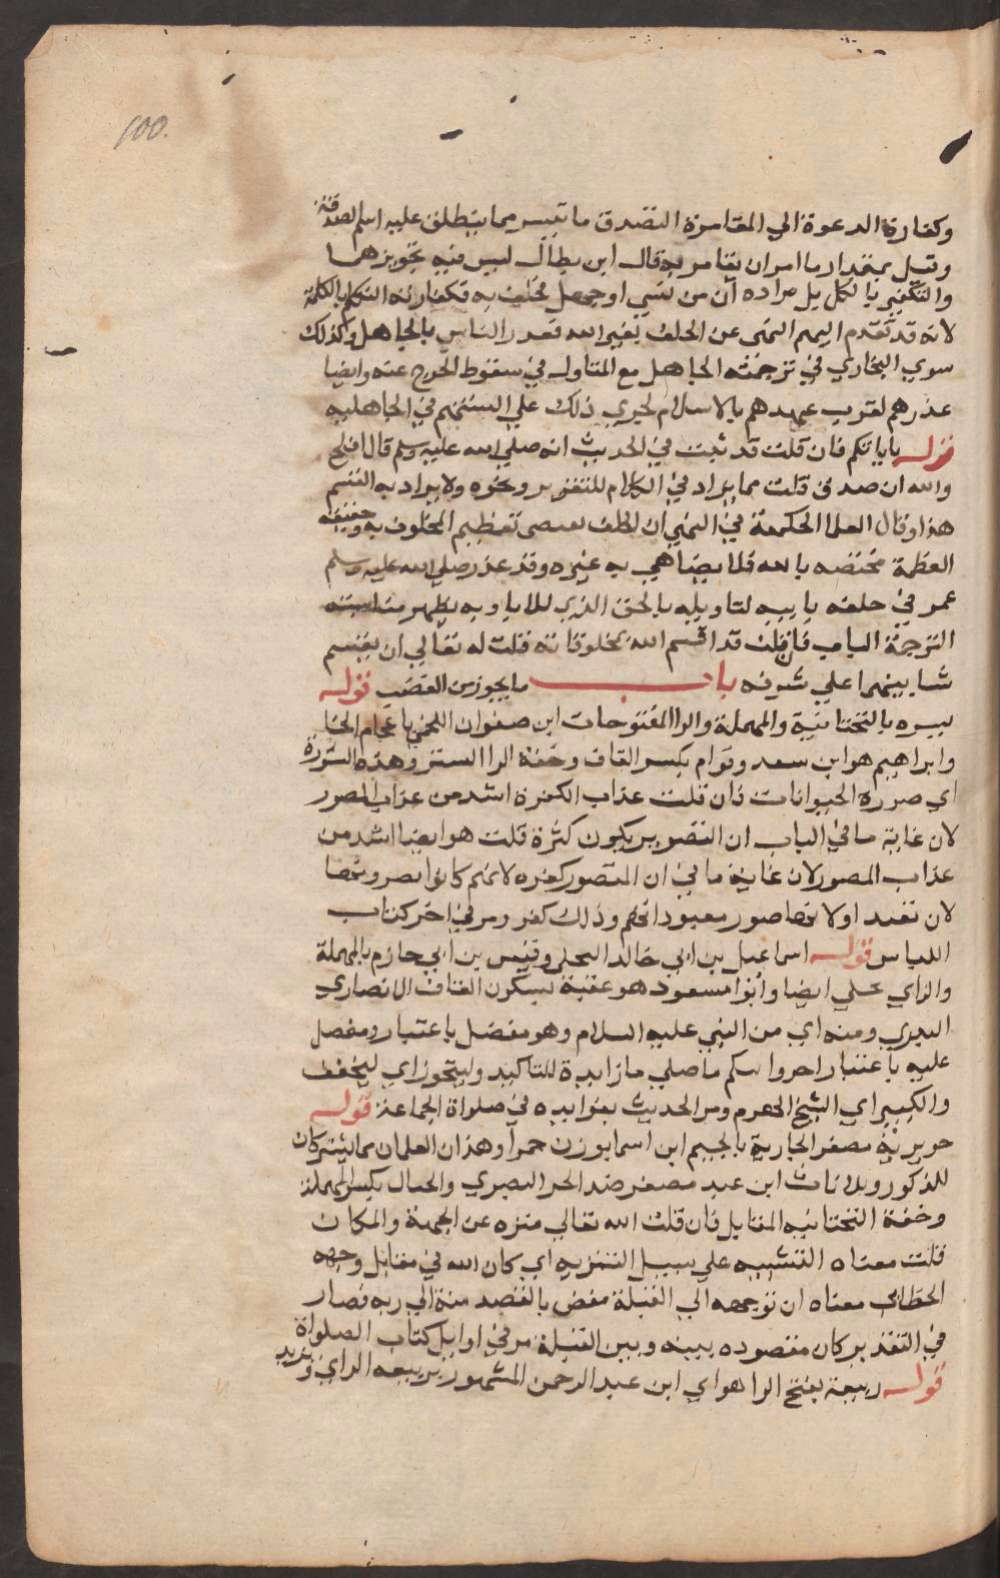 100.
وكفارة الدعوة الي المقامرة التصدق ما تيسر مما ينطلق عليه اسم الصدقة
وقيل بمقدار ما امر ان يقامر به قال ابن بطال ليس فيه تجويز هما
والتكفير بالكل بل مراده ان من نسي او جهل فحلف به فكفارته التكلم بالكلمة
لانه قد تقدم اليهم النهى عن الحلف بغير الله فعدر الناس بالجاهل وكذلك
سوي البخاري في ترجمته الجاهل مع المتاول في سقوط الحرج عنه وايضا
عذرهم لقرب عهدهم بالاسلام لجري ذلك علي السنتهم في الجاهليه
قوله بابائكم فان قلت قد ثبت في الحديث انه صلي الله عليه وسلم قال افلح
والله ان صدق قلت مما يراد في الكلام للتقرير ونحوه ولا يراد به القسم
هذا وقال العلما الحكمة في النهي ان الحلف يقتضى تعظيم المحلوف به وحقيقة
العظمة مختصه بالله فلا يضاهي به غيره وقد عذر صلي الله عليه وسلم
عمر في حلفه بابيه لتاويله بالحق الذي للابا وبه يظهر مناسبته
الترجمة الباب فان قلت قد اقسم الله بمخلوقاته قلت له تعالي ان يقسم
شا بينهما علي شرفه باب ما يجوز من الغضب قوله
يسره بالتحتانية والمهملة والرا المفتوحات ابن صفوان اللخمي باعجام الخا
وابراهيم هو ابن سعد وقرام بكسر القاف وخفة الرا الستر وهذه الصورة
اي صورة الحيوانات فان قلت عذاب الكفرة اشد من عذاب المصور
لان غاية ما في الباب ان التصوير يكون كثرة قلت هو ايضا اشد من
عذاب المصور لان غاية ما في ان التصور كفره لانهم كانوا يصرونها
لان تعبد اولا نها صور معبوداتهم وذلك كفر ومر في اخر كتاب
اللباس قوله اسماعيل بن ابي خالد البجلي وقيس بن ابي حازم بالمهملة
والزاي بجلي ايضا وابو مسعود هو عقبة بسكون القاف الانصاري
البدري ومنه اي من النبي عليه السلام وهو مفضل باعتبار ومفضل
عليه باعتبار اخر وايكم ما صلي ما زايدة للتاكيد وليتجوز اي ليخفف
والكبير اي الشيخ الهرم ومر الحديث بفوايده في صلواة الجماعة قوله
جويرية مصغر الجارية بالجيم ابن اسما بوزن حمرا وهذان العلمان مما يشتركان
للذكور وللاناث ابن عبيد مصغر ضد الحر البصري والحيال بكسر المهملة
وخفة التحتانيه المقابل فان قلت الله تعالي منزه عن الجهة والمكان
قلت معناه التشبيه علي سبيل التنزيه اي كان الله في مقابل وجهه
الخطابى معناه ان توجهه الي القبلة مفض بالقصد منه الي ربه فصار
في التقدير كان مقصوده بينه وبين القبلة مر في اوايل كتاب الصلواة
قوله ربيعة بفتح الرا هو اي ابن عبد الرحمن المشهور بربيعه الراي ويزيد